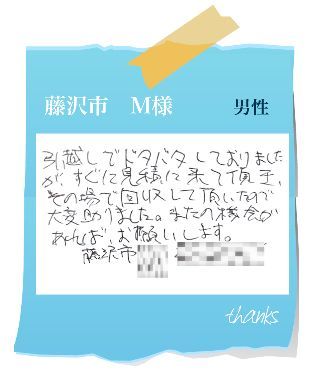 藤沢市 M様 男性
引越しでドタバタしておりました
が、すぐに見積に来て頂き、
その場で回収して頂いたので
大変助りました。またの機会が
あれば、お願いします。
藤沢市
thanks